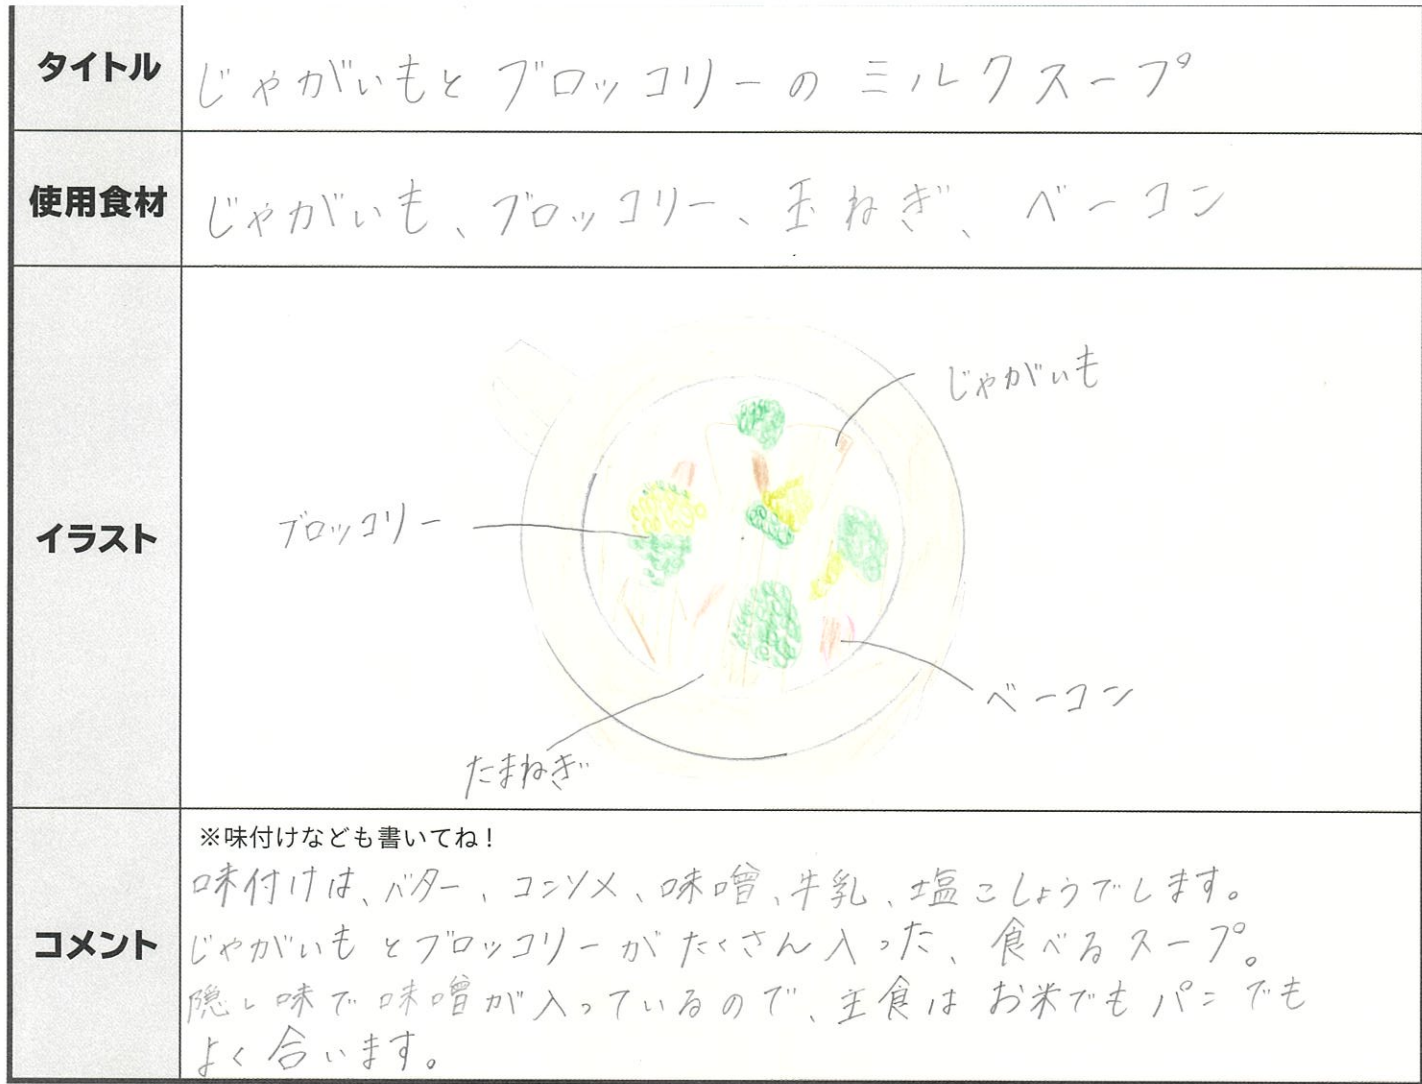 タイトル
じゃがいもとブロッコリーのミルクスープ
使用食材
じゃがいも、ブロッコリー、玉ねぎ、ベーコン
イラスト
じゃがいも
ブロッコリー
ベーコン
たまねぎ
コメント
※味付けなども書いてね！
味付けは、バター、コンソメ、味噌、牛乳、塩こしょうでします。
じゃがいもとブロッコリーがたくさん入った、食べるスープ。
隠し味で味噌が入っているので、主食はお米でもパンでも
よく合います。